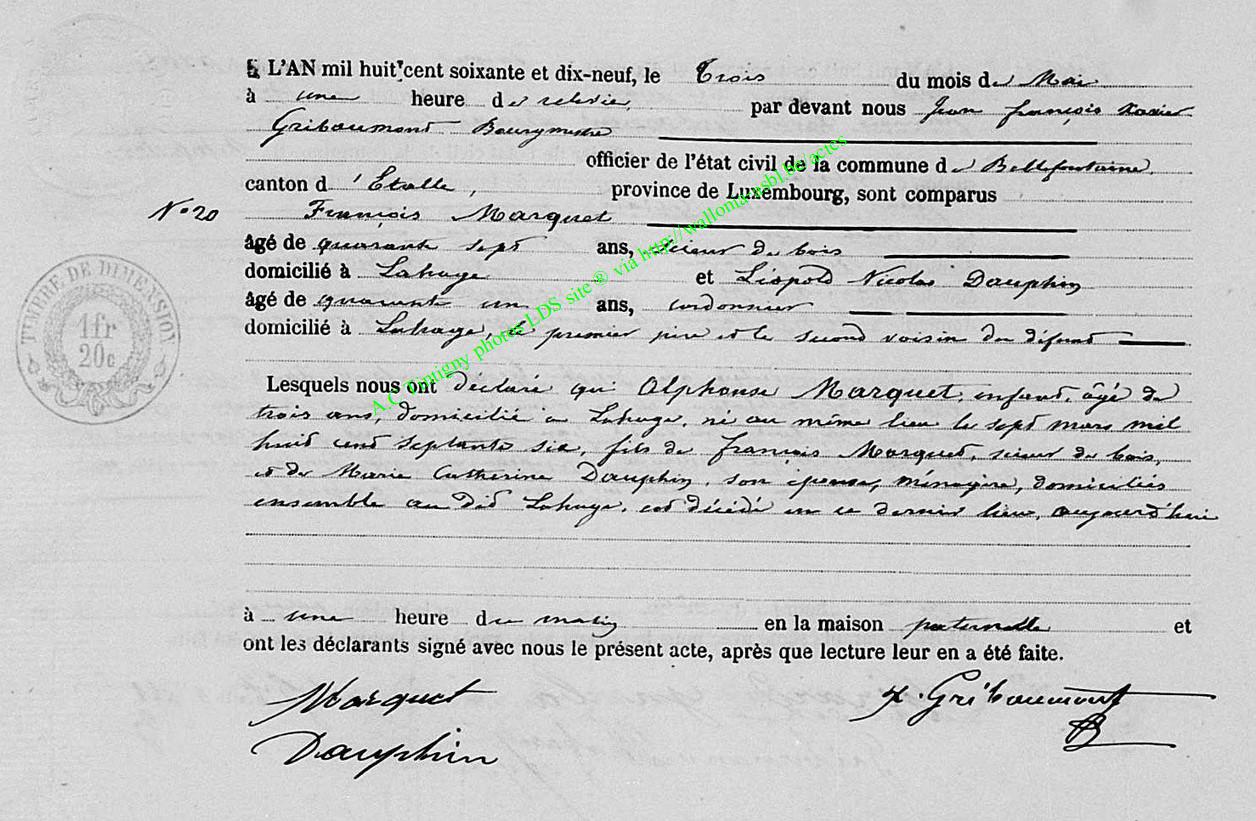 L'AN mil huit cent soixante et dix-neuf, le Trois du mois de Mai
à une heure de relevée, par devant nous Jean François Xavier
Gribaumont Bourgmestre
officier de l'état civil de la commune de Bellefontaine,
canton d'Etalle, province de Luxembourg, sont comparus
N° 20 François Marquet
âgé de quarante sept ans, scieur de bois
domicilié à Lahage et Léopold Nicolas Dauphin
âgé de quarante un ans, cordonnier
domicilié à Lahage, le premier père et le second voisin du défunt
TIMBRE DE DIMENSION
1 fr
20c
Lesquels nous ont déclaré que Alphonse Marquet, enfant, âgé de
trois ans, domicilié à Lahage, né au même lieu le sept mars mil
huit cent septante six, fils de François Marquet, scieur de bois,
et de Marie Catherine Dauphin, son épouse, ménagère, domiciliés
ensemble au dit Lahage, est décédé en ce dernier lieu, aujourd'hui
à une heure du matin en la maison paternelle et
ont les déclarants signé avec nous le présent acte, après que lecture leur en a été faite.
Marquet
Dauphin
X. Gribaumont
A.C. Tintigny photos LDS site ® via http://wallonia-asbl.be/actes